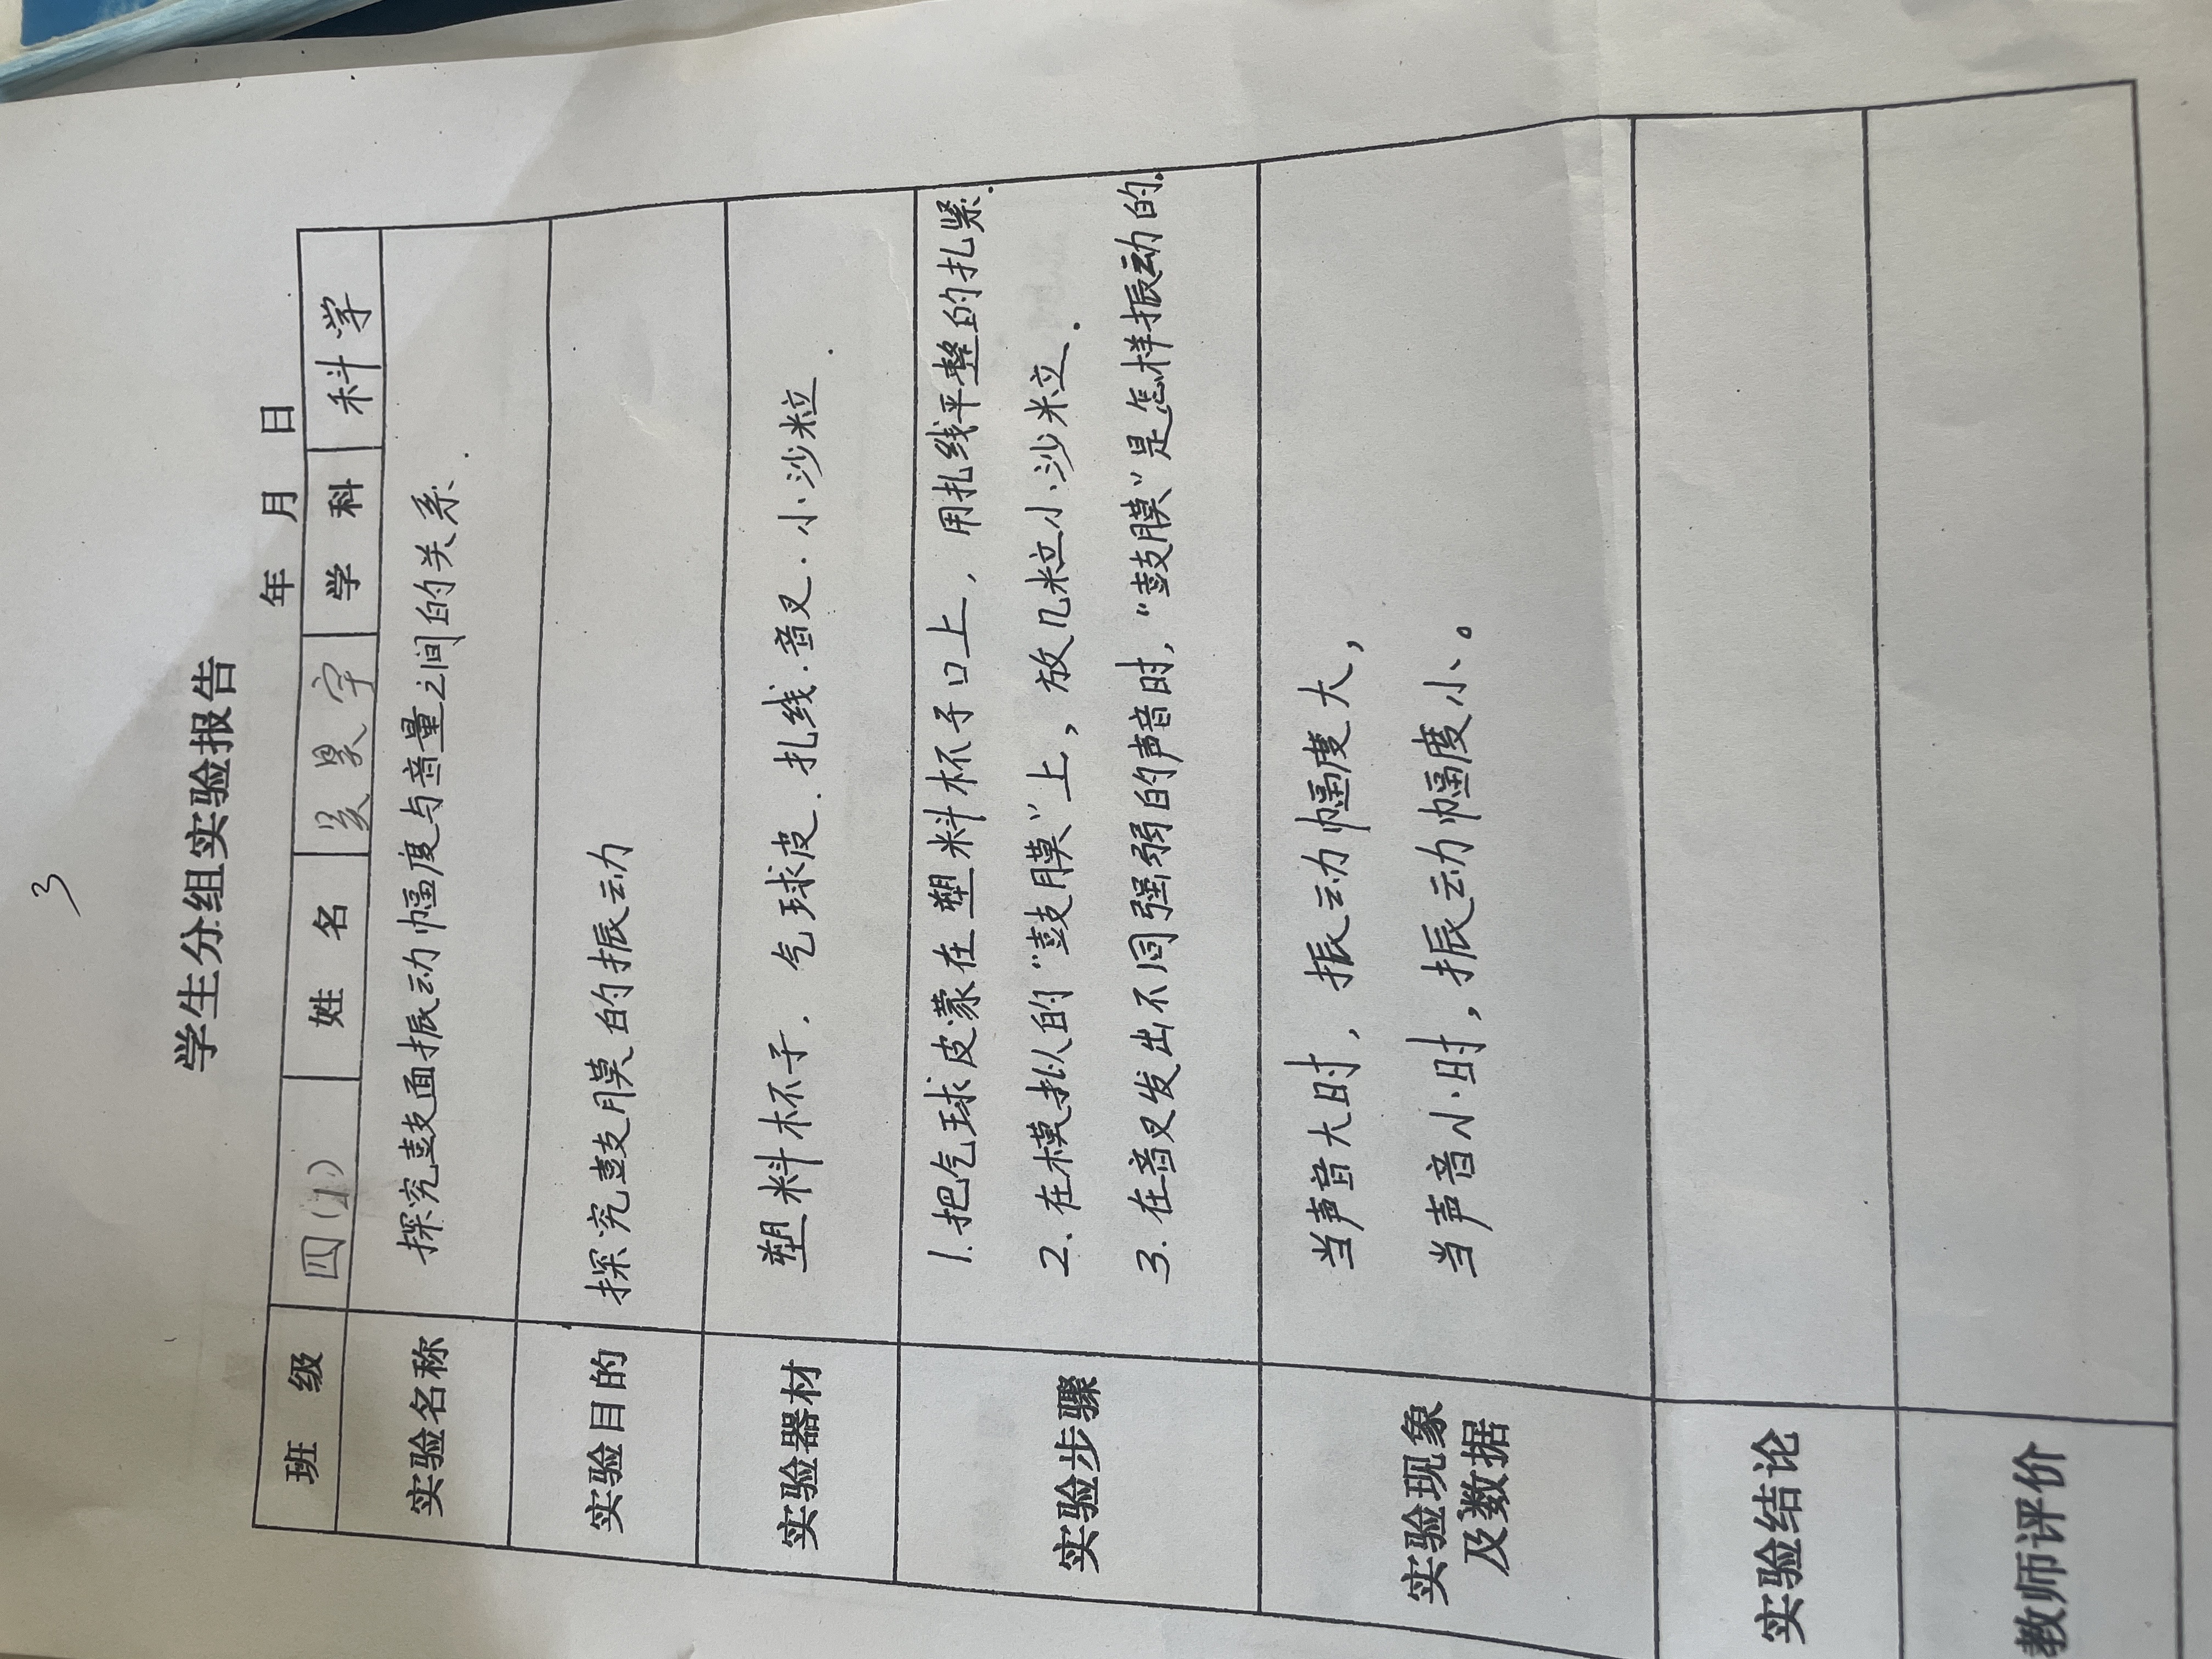 3
学生分组实验报告
年 月 日
班 级 四(1) 姓 名 吴昊宇 学 科 科学
实验名称 探究鼓面振动幅度与音量之间的关系.
实验目的 探究鼓膜的振动
实验器材 塑料杯子. 气球皮.扎线.音叉.小沙粒.
1.把气球皮蒙在塑料杯子口上,用扎线平整的扎紧.
2、在模拟的“鼓膜”上,放几粒小沙粒.
实验步骤
3.在音叉发出不同强弱的声音时,“鼓膜”是怎样振动的.
当声音大时,振动幅度大,
实验现象
及数据
当声音小时,振动幅度小。
实验结论
教师评价